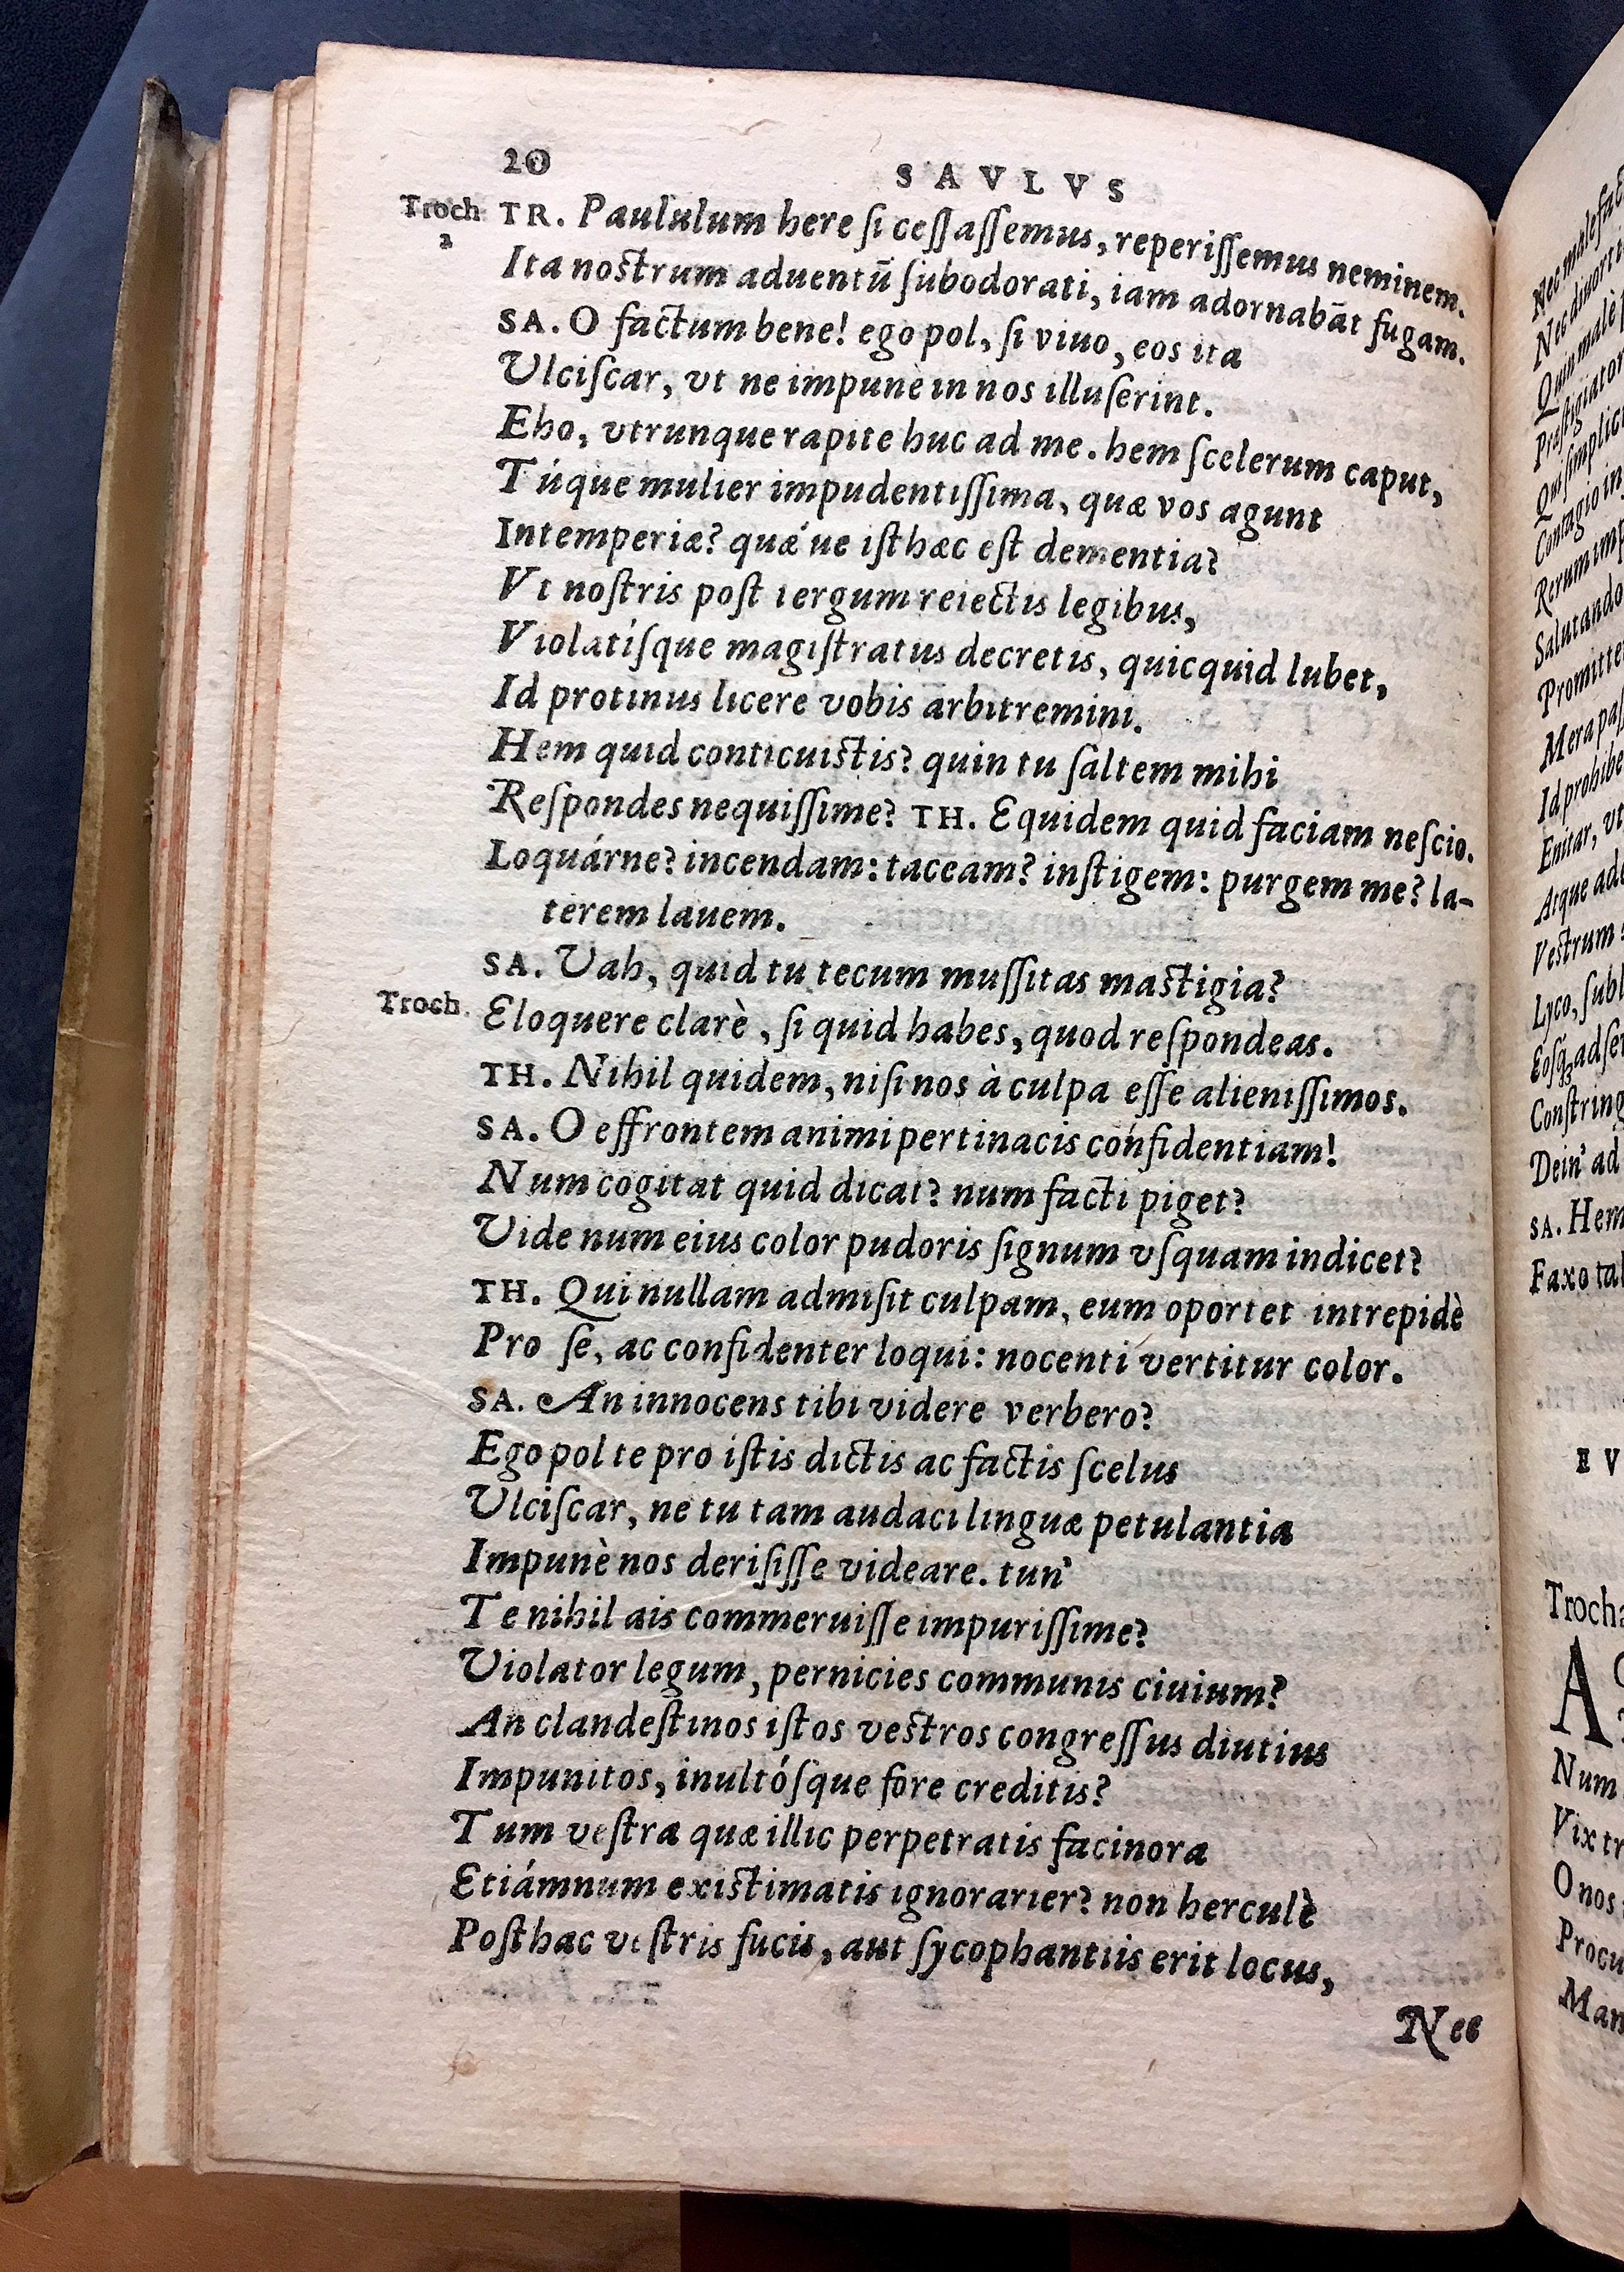 20
SAVLVS
Troch
2
TR. Paululum here ſi ceſſaſſemus, reperiſſemus neminem.
Ita noſtrum aduentū ſubodorati, iam adornabāt fugam.
SA. O factum bene! ego pol, ſi viuo, eos ita
Ulciſcar, vt ne impunè in nos illuſerint.
Eho, vtrunque rapite huc ad me. hem ſcelerum caput,
Túque mulier impudentiſſima, quæ vos agunt
Intemperiæ? quæ´ue iſthæc eſt dementia?
Vt noſtris poſt tergum reiectis legibus,
Violatíſque magiſtratus decretis, quicquid lubet,
Id protinus licere vobis arbitremini.
Hem quid conticuiſtis? quin tu ſaltem mihi
Reſpondes nequiſſime? TH. Equidem quid faciam neſcio.
Loquárne? incendam: taceam? inſtigem: purgem me? la-
terem lauem.
SA. Uah, quid tu tecum muſſitas maſtigia?
Troch.
Eloquere clarè, ſi quid habes, quod reſpondeas.
TH. Nihil quidem, niſi nos à culpa eſſe alieniſſimos.
SA. O effrontem animi pertinacis confidentiam!
Num cogitat quid dicat? num facti piget?
Uide num eius color pudoris ſignum vſquam indicet?
TH. Qui nullam admiſit culpam, eum oportet intrepidè
Pro ſe, ac confidenter loqui: nocenti vertitur color.
SA. An innocens tibi videre verbero?
Ego pol te pro iſtis dictis ac factis ſcelus
Ulciſcar, ne tu tam audaci linguæ petulantia
Impunè nos deriſiſſe videare. tun'
Te nihil ais commeruiſſe impuriſſime?
Uiolator legum, pernicies communis ciuium?
An clandeſtinos iſtos veſtros congreſſus diutius
Impunitos, inultóſque fore creditis?
Tum veſtra quæ illic perpetratis facinora
Etiámnum exiſtimatis ignorarier? non herculè
Poſthac veſtris fucis, aut ſycophantiis erit locus,
Nec
Nec malefa
Quin malè
Rerum imp
Salutando
Promitte
Id prohibe
Enitar, vt
Atque ade
Veſtrum
Lyco, ſubl
Conſtring
Dein' ad
SA. Hem
Faxo tal
EV
Trocha
A
Num
Vix tr
O nos
Procu
Man